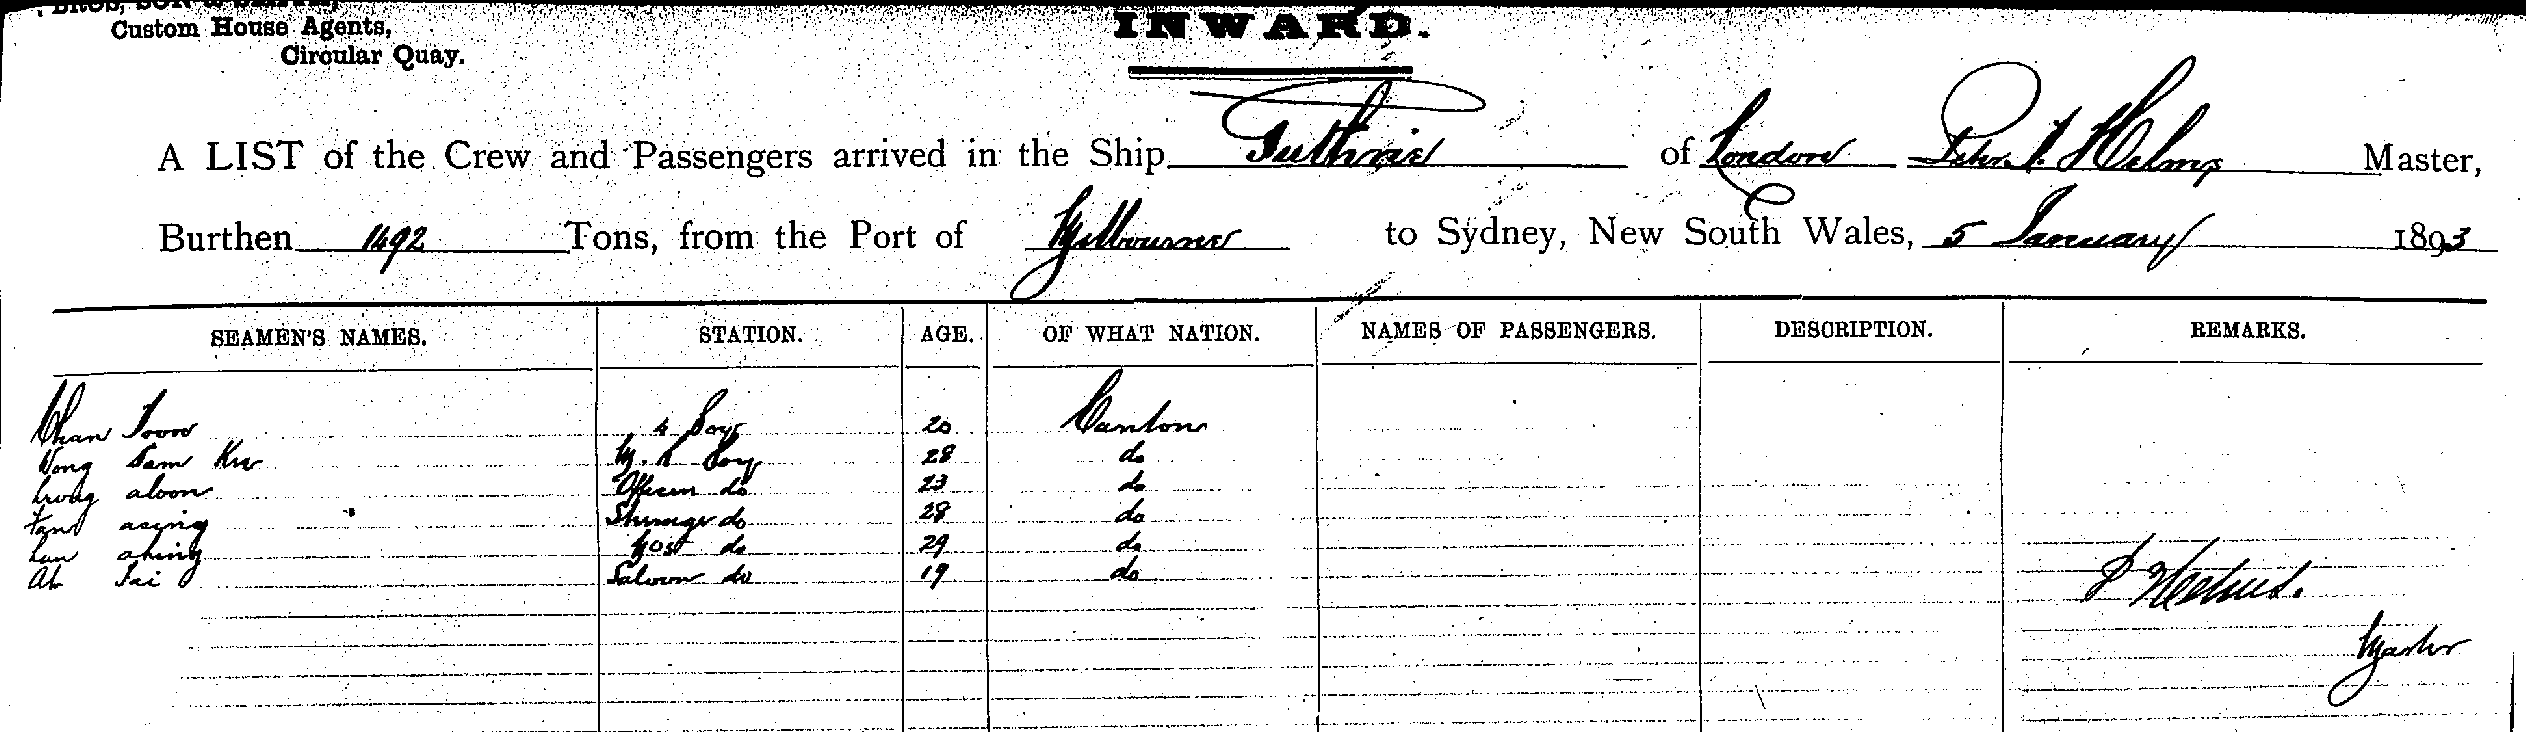 Custom House Agents,
Circular Quay.
INWARD.
A LIST of the Crew and Passengers arrived in the Ship Guthrie of London Helms Master,
Burthen 1492 Tons, from the Port of Melbourne to Sydney, New South Wales, 5 January 1893
SEAMEN'S NAMES. STATION. AGE. OF WHAT NATION. NAMES OF PASSENGERS. DESCRIPTION. REMARKS.
Chan Toon 4 Boy 20 Canton
Wong Sam Boy 28 do
aloon Officers do 23 do
asing do 28 do
ahing do 29 do
Ah Tai Saloon do 19 do
P Helms.
Master